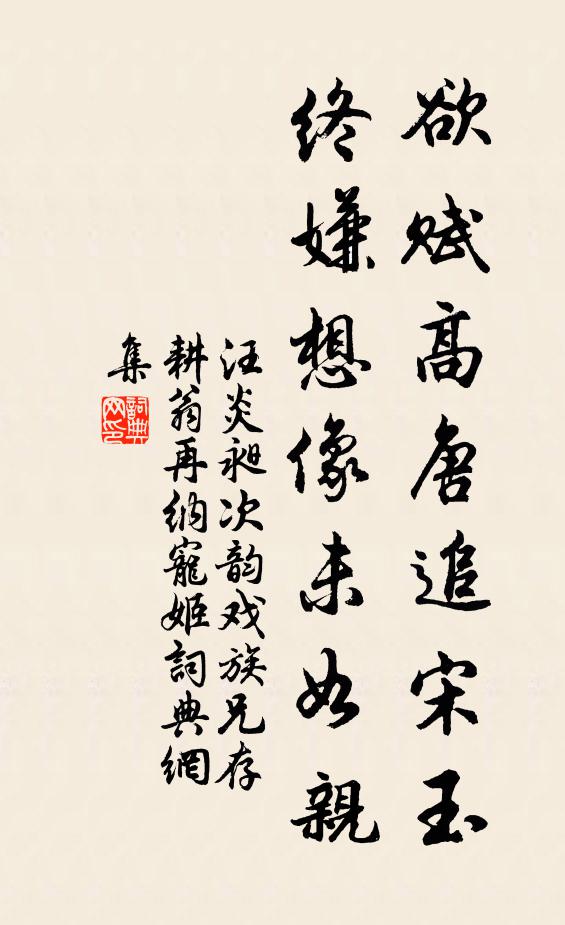 欲赋高唐追宋玉
终嫌想像未如親
汪炎昶次韵戏族兄存
耕翁再纳寵姬詞典網
集
詞典
网印